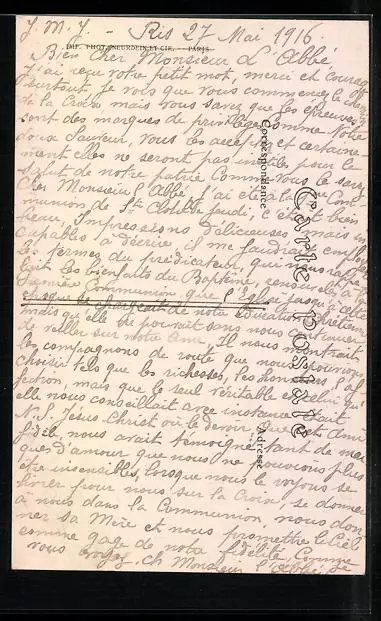 J. M. J. - Ris 27 Mai 1916.
IMP. PHOT. NEURDEIN ET CIE. - PARIS
Bien Cher Monsieur L'Abbé,
J'ai reçu votre petit mot, merci et courage
surtout, je vois que vous commencez le chemin
de la Croix mais vous savez que les épreuves
sont des marques de privilège, comme Notre
doux Sauveur, vous les acceptez et certaine-
ment elles ne seront pas inutiles pour le
salut de notre patrie comme vous le savez
Cher Monsieur l'Abbé, j'ai été à la 1ère Com-
munion de Ste Clotilde jeudi, c'était bien
beau, Impressions délicieuses mais in
capables à décrire, il me faudrait employer
les termes du prédicateur, qui nous
tant les bienfaits du Baptême, ensuite à la
Première Communion que l'Eglise jusqu'à cette
époque se chargeait de notre éducation chrétienne
mais qu'elle ne pouvait sans nous continuer
de veiller sur notre âme, Il nous montrait
les compagnons de route que nous pouvions
choisir tels que les richesses, les honneurs, l'af
fection, mais que le seul véritable et celui qu'
elle nous conseillait avec instance était
N. S. Jésus-Christ où le devoir, que cet Ami
fidèle nous avait témoigné tant de mar
ques d'amour que nous ne pouvions plus
être insensibles, lorsque nous le voyons se
livrer pour nous sur la Croix, se donner
à nous dans la Communion, nous don
ner sa Mère et nous promettre le Ciel
comme gage de notre fidélité. Comme
vous voyez, ch Monsieur l'Abbé, je
Carte postale
Correspondance
Adresse